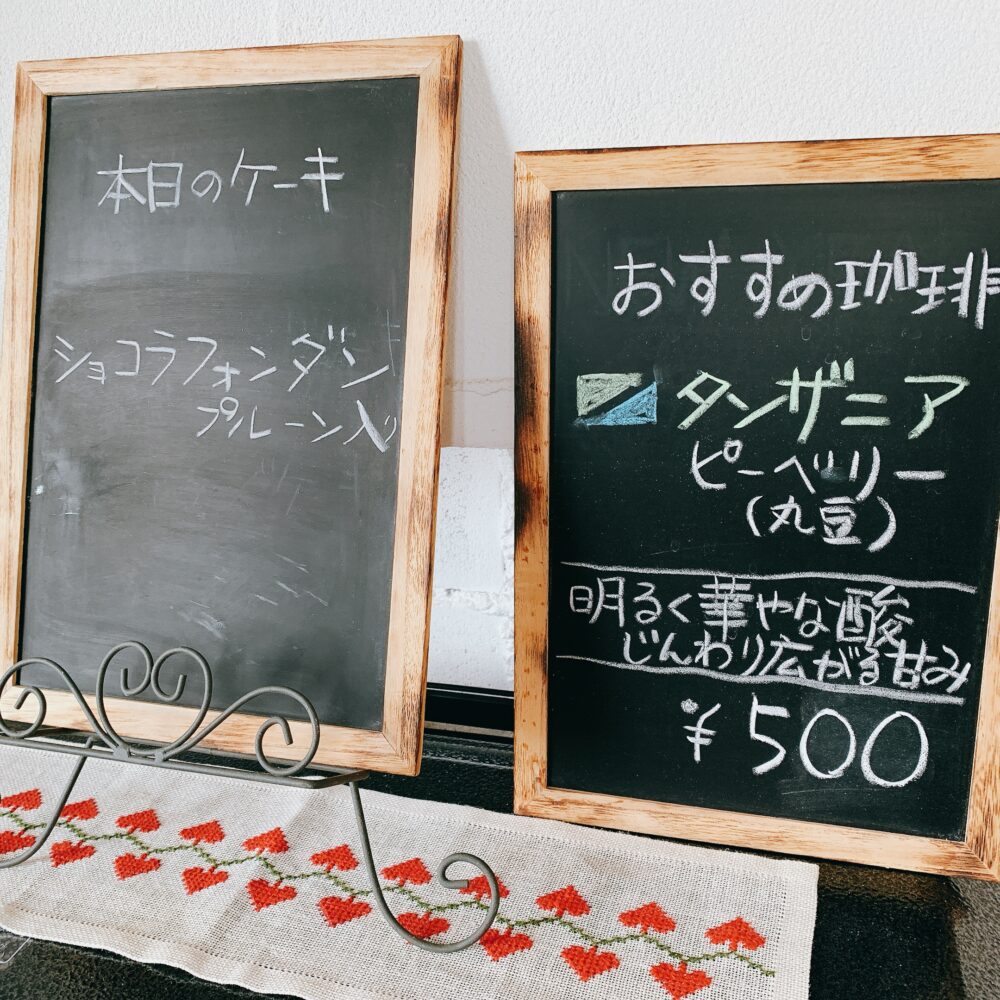 本日のケーキ
ショコラフォンダン
プルーン入り
おすすめ珈琲
タンザニア
ピーベリー
(丸豆)
明るく華やな酸
じんわり広がる甘み
¥500